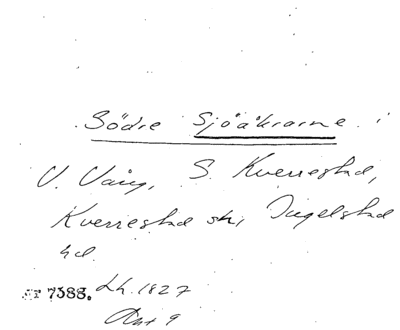 Södre Sjöåkrarne i
V. Vång, S. Kverrestad,
Kverrestad sn, Ingelstad
hd.
ST 7388. Lh. 1827
Akt 9